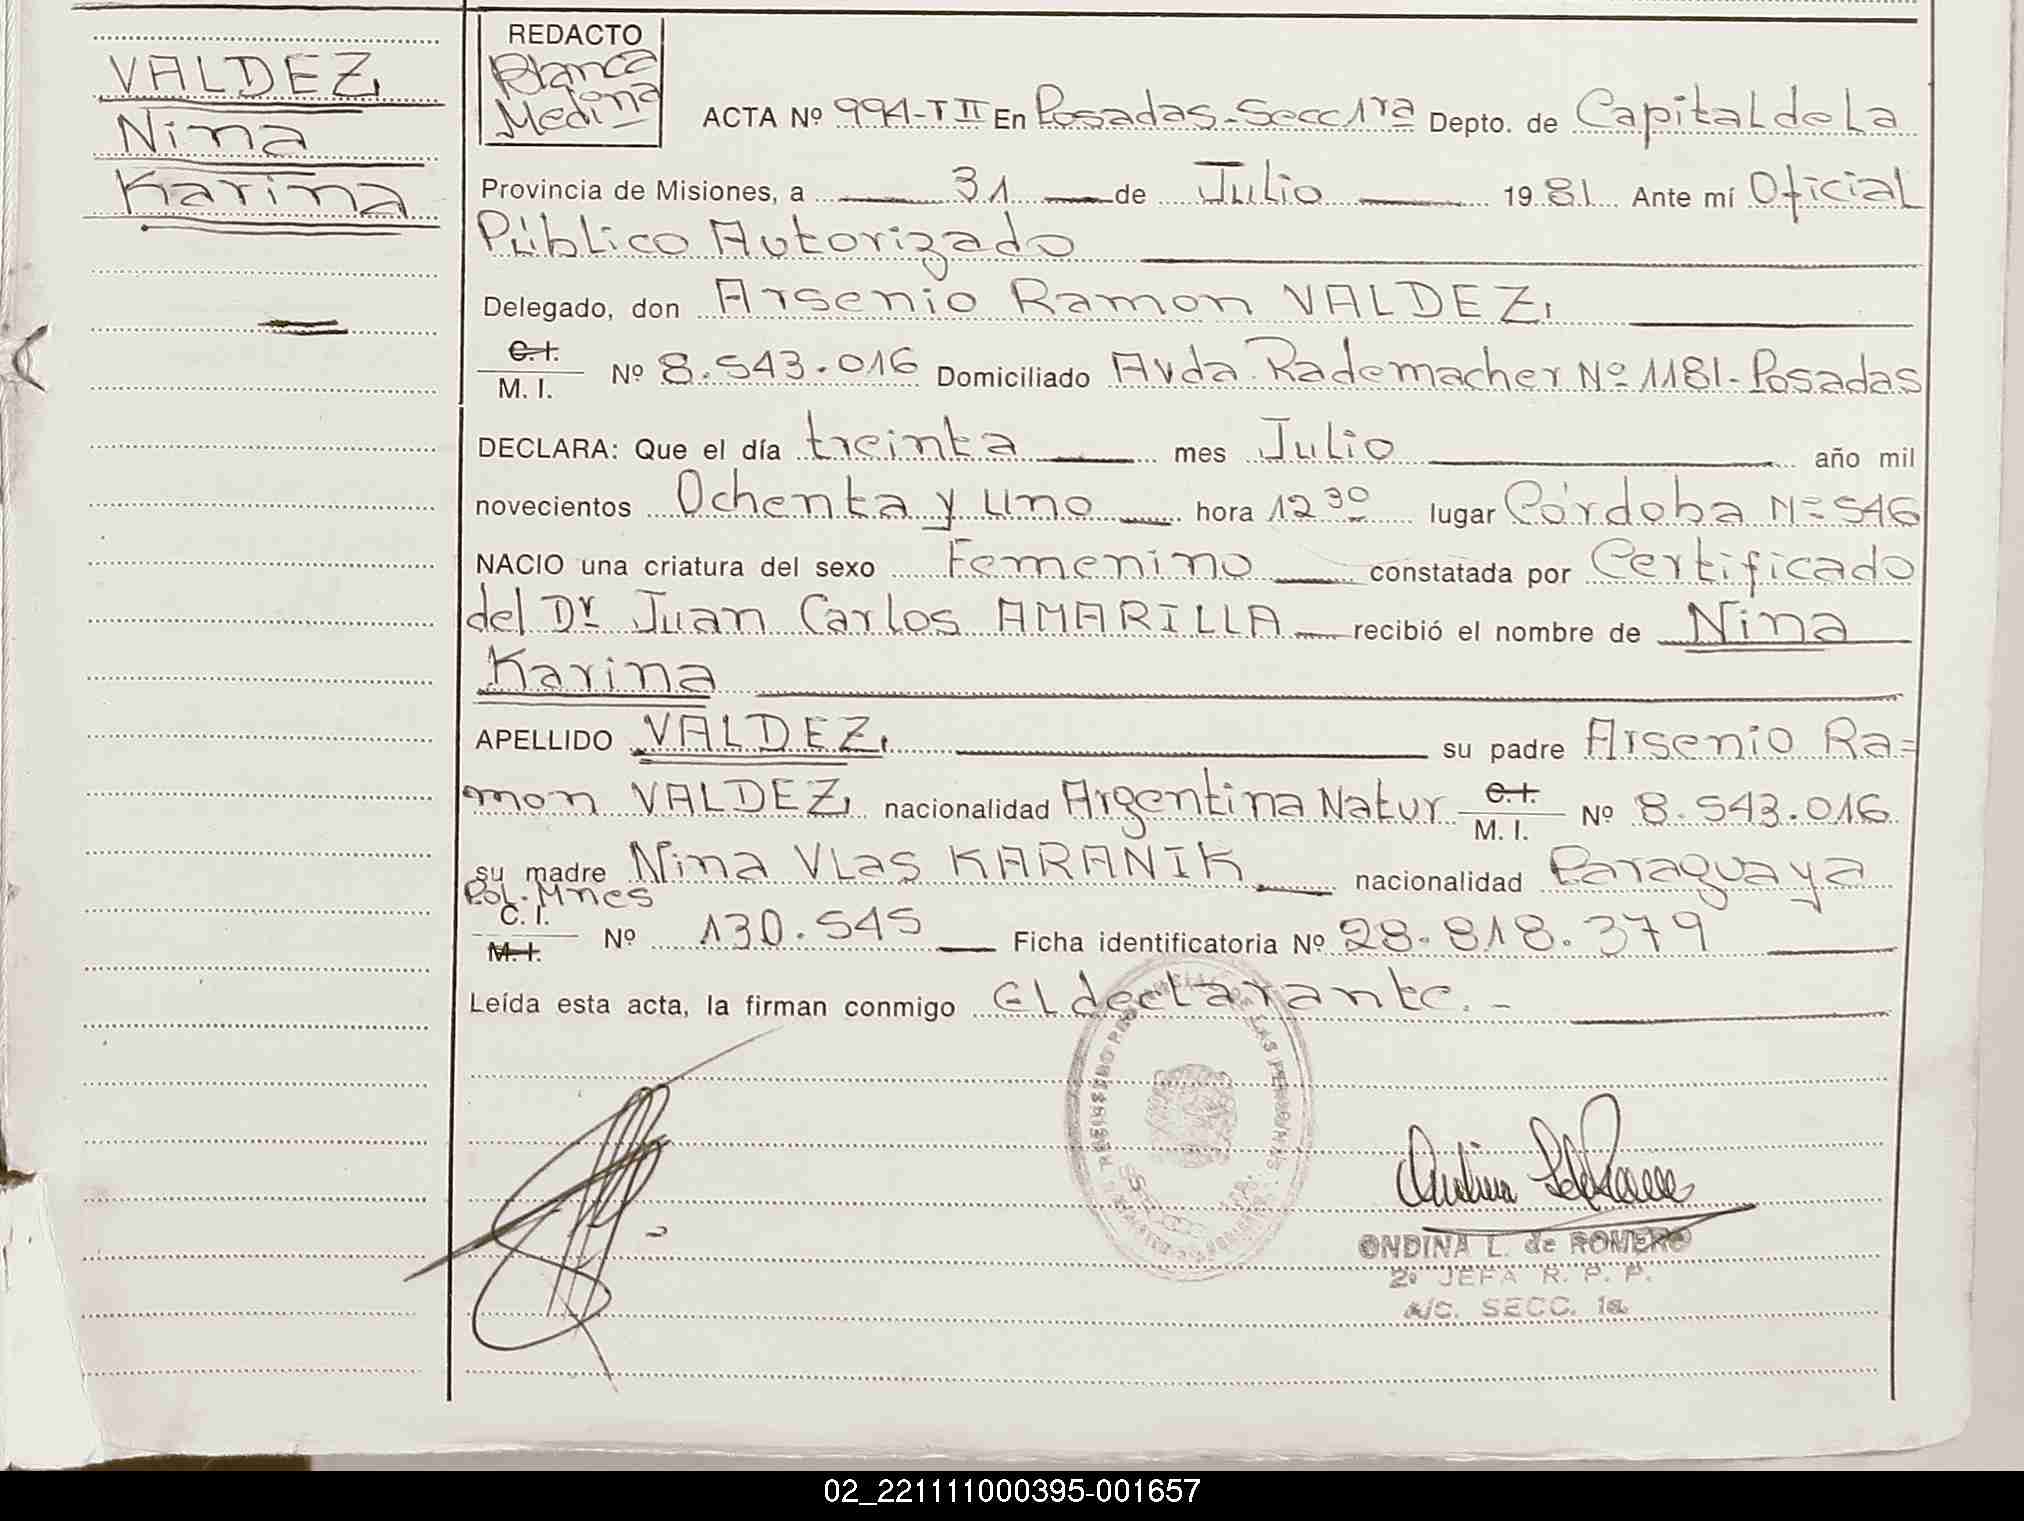 VALDEZ,
Nina
Karina
REDACTO
Blanca
Medina
ACTA Nº 991-TII En Posadas-Secc 1ra Depto. de Capital de La
Provincia de Misiones, a 31 de Julio 1981 Ante mí Oficial
Público Autorizado
Delegado, don Arsenio Ramon VALDEZ,
C.I.
M. I. Nº 8.543.016 Domiciliado Avda. Rademacher Nº 1181-Posadas
DECLARA: Que el día treinta mes Julio año mil
novecientos Ochenta y uno hora 12 30 lugar Córdoba Nº 546
NACIO una criatura del sexo Femenino constatada por Certificado
del Dr Juan Carlos AMARILLA recibió el nombre de Nina
Karina
APELLIDO VALDEZ, su padre Arsenio Ra=
mon VALDEZ, nacionalidad Argentina Natur C.I. M. I. Nº 8.543.016
su madre Nina Vlas KARANIK nacionalidad Paraguaya
Pol. Mnes
C. I.
M.I. Nº 130.545 Ficha identificatoria Nº 28.818.379
Leída esta acta, la firman conmigo El declarante.-
ONDINA L. de ROMERO
2º JEFA R. P. P.
a/c. SECC. 1a
02_221111000395-001657